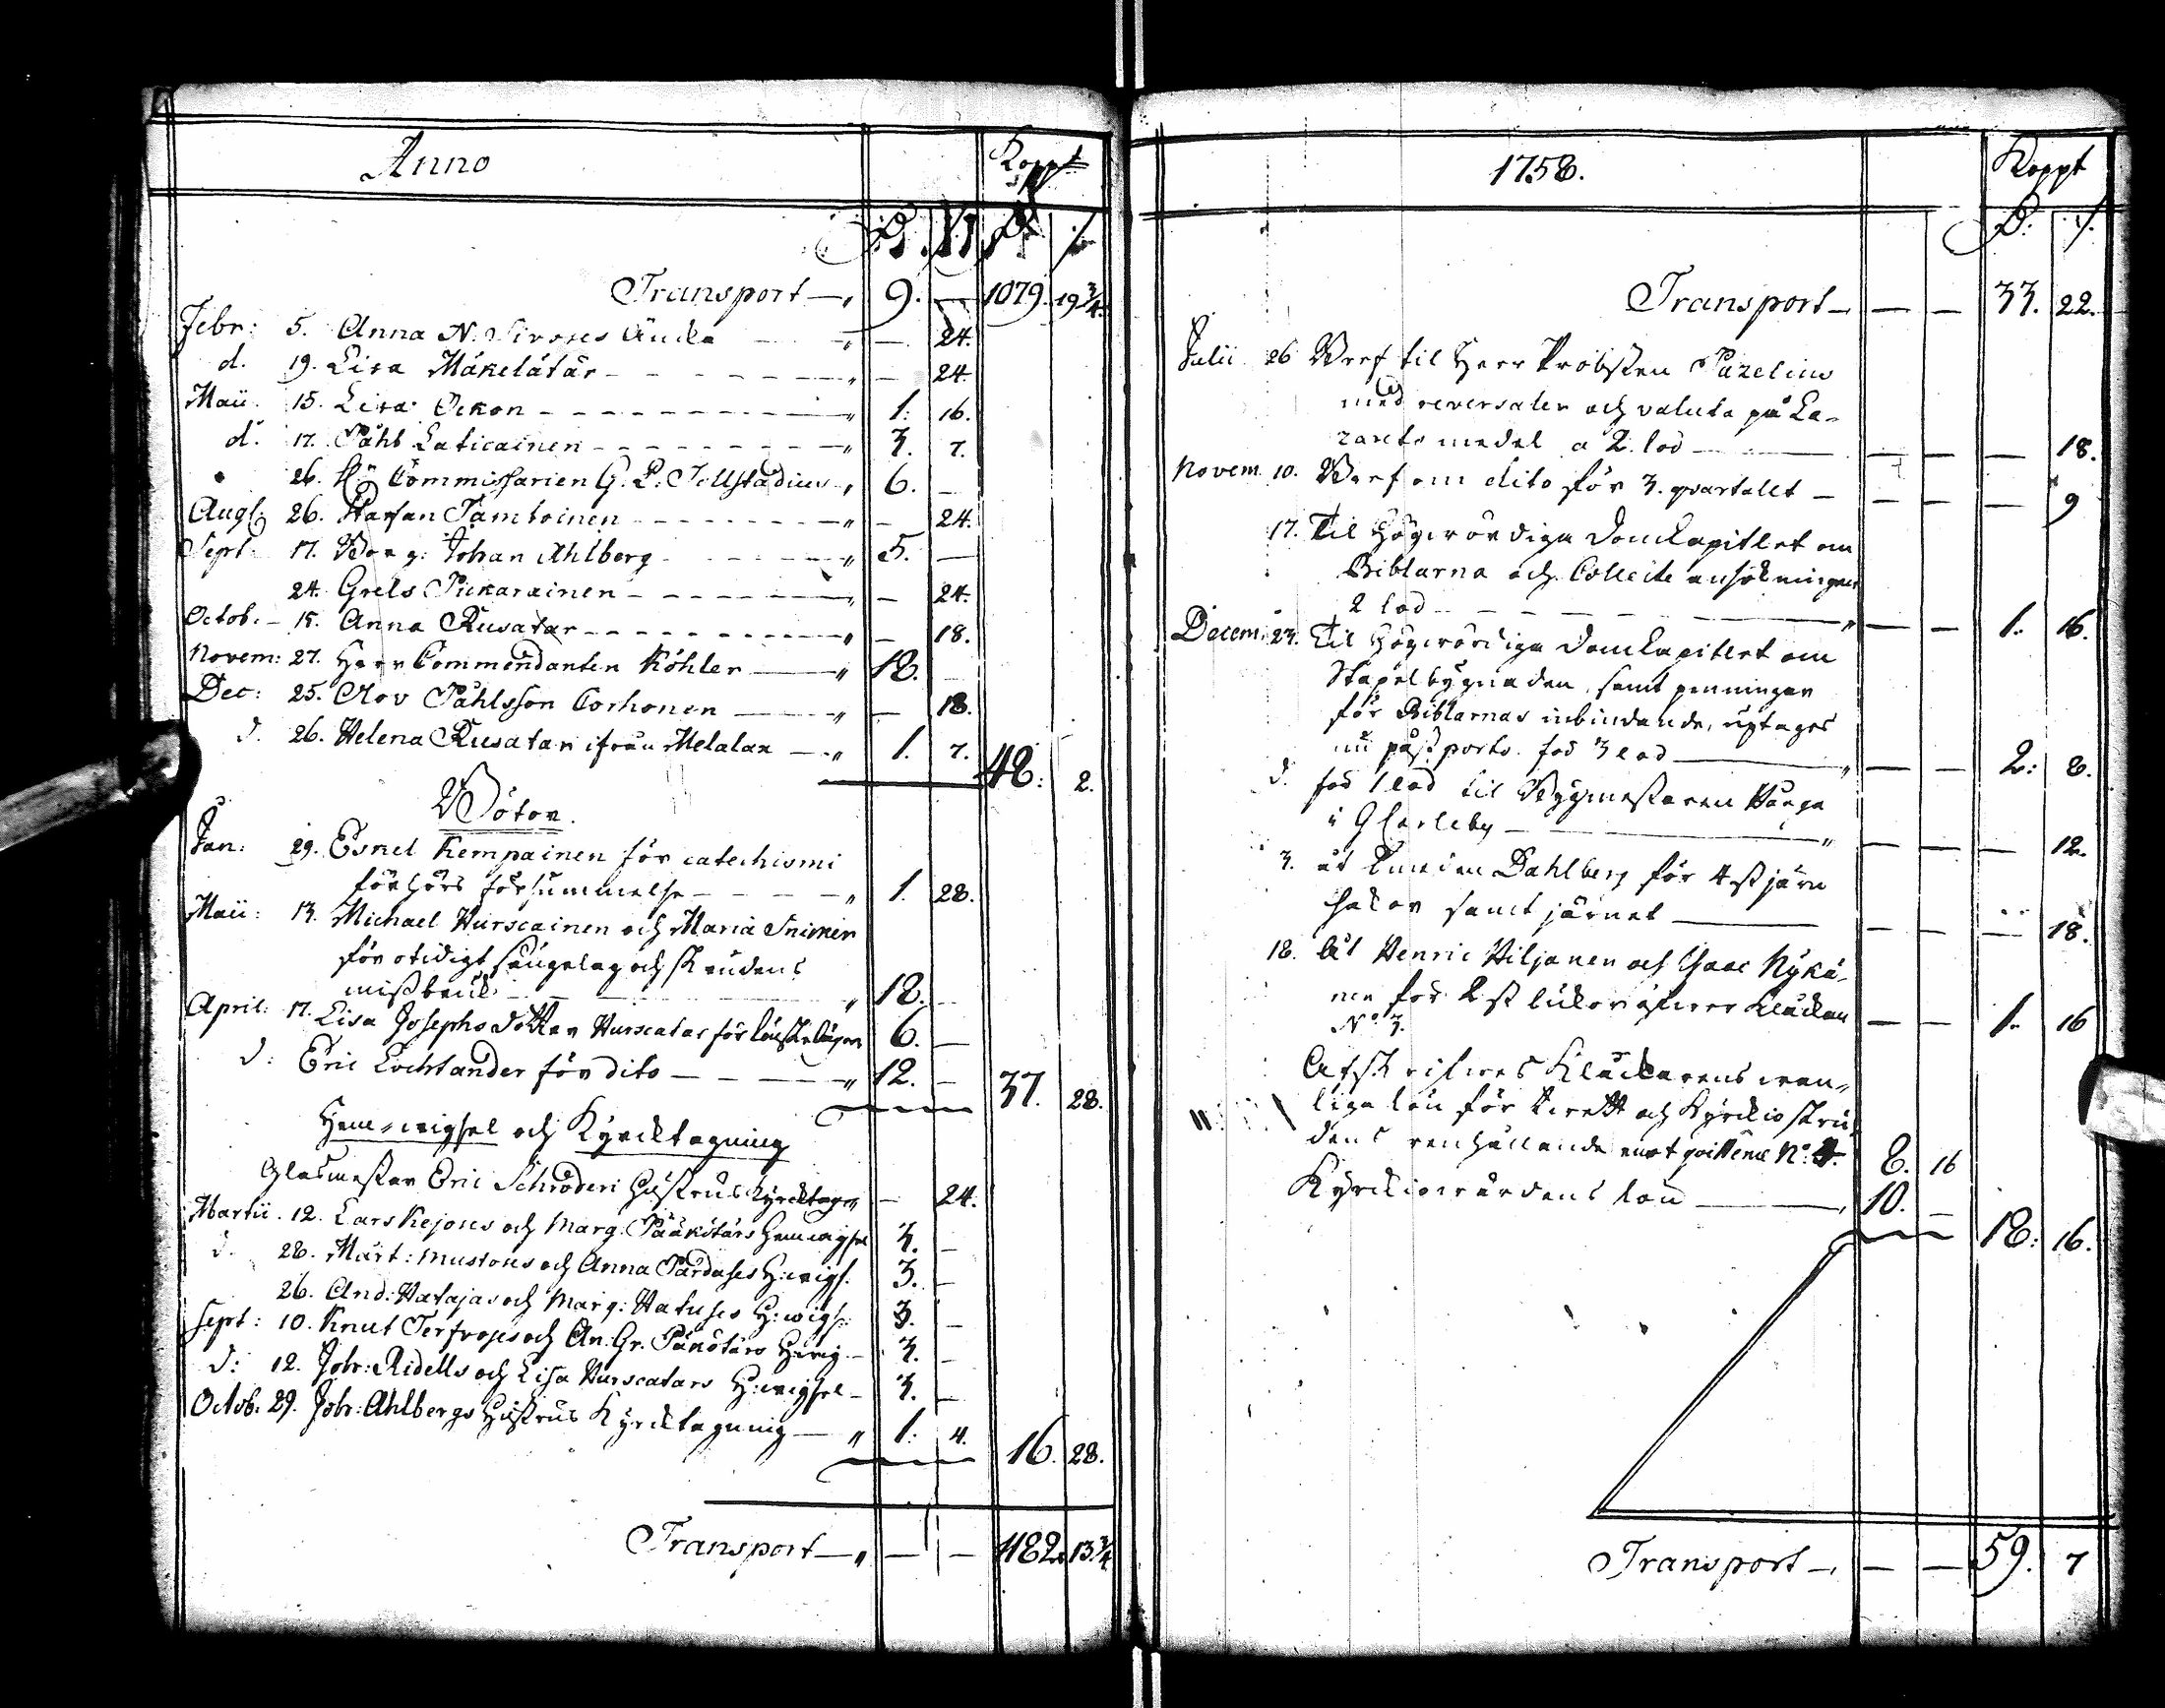 Anno
Koppt
D. /. D. /.
Transport — " 9. — 1079. 19 3/4.
Febr: 5. Anna N. Sirones Äncka — " — 24.
d. 19. Lisa Mäkelätär — " — 24.
Maii. 15. Lisa Ockon — " 1. 16.
d. 17. Påhl Laticainen — " 3. 7.
26. Hr Commissarien G. P. Tellstadius " 6. —
Augl 26. Staffan Tamtoinen — " — 24.
Sept. 17. Borg: Johan Ahlberg — " 5. —
24. Grels Pickarainen — " — 24.
Octob. — 15. Anna Rusatar — " — 18.
Novem: 27. Herr Commendanten Köhler — " 18.
Dec: 25. Olov Påhlsson Corhonen — " — 18.
d. 26. Helena Rusatar ifrån Melalax — " 1. 7.
48: 2.
Böter.
Jan: 29. Eskel Kempainen för catechismi
förhörs försummelse — " 1. 28.
Maii: 13. Michael Hurscainen och Maria Snicker
för otidigt sängelag och skrudens
missbruk — " 18. —
April: 17. Lisa Josephs dotter Hurscatar för 6. —
d: Eric Lochtander för dito — " 12. — 37. 28.
Hem-wigsel och Kyrcktagning
Glasmestar Eric Schröderi Hustrus Kyrcktagn — 24.
Martii. 12. Lars Kejones och Marg. Pääkötärs Hemwigsel 3. —
d. 28. Mårt: Mustones och Anna Pardases H:wigs. 3. —
26. And: Hatajas och Marg: Hatuses H:wigs: 3. —
Sept: 10. Knut Terfvoses och An. Gr. Pänötärs H:wig — 3. —
d: 12. Joh: Ridells och Lisa Hurscatars H:wigsel — 3. —
Octob: 29. Joh: Ahlbergs Hustrus Kyrcktagning — " 1: 4.
16. 28.
Transport — " — — 1182. 13 3/4
1758.
Koppt
D: /.
Transport — — — 33. 22.
Julii 26 Bref til Herr Probsten Pazelius
med reversaler och valuta på La-
zarets medel a 2. lod — — — — 18.
Novem. 10. Bref om dito för 3. qvartalet — — — — 9
17. Til Högwördiga Domkapitlet om
Biblarna och Collecte ansökningen
2 lod — " — — 1. 16.
Decem: 23. Til Högwördiga Domkapitlet om
Stapelbygnaden, samt penningar
för Biblarnas inbindande, uptages
nu påst porto för 3 lod — " — — 2: 8.
d. för 1 lod til Bygmestaren Hånga
i GCarleby — " — — — 12.
3. åt Smeden Dahlberg för 4 st järn
hakor samt järnet — — — — 18.
18. åt Henric Hiljanen och Isaac Nykä-
nen för 2 st luckor öfwer Kläckan
No. 3. — — 1. 16
Afskrifwes Klåckarens wan-
liga lön för twett och Kyrckio skru-
dens renhållande emot qvittence No: 4. 8. 16
Kyrckiowärdens lön — 10. —
18: 16.
Transport — — — 59. 7